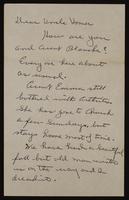 Dear Uncle Homer
How are you
and Aunt Blanche?
Every one here about
as usual.
Aunt Emma still
bothered with arthritis.
She has gone to church
a few Sundays, but
stays home most of time.
We have had a beautiful
fall but old man winter
is on the way and I
dread it.